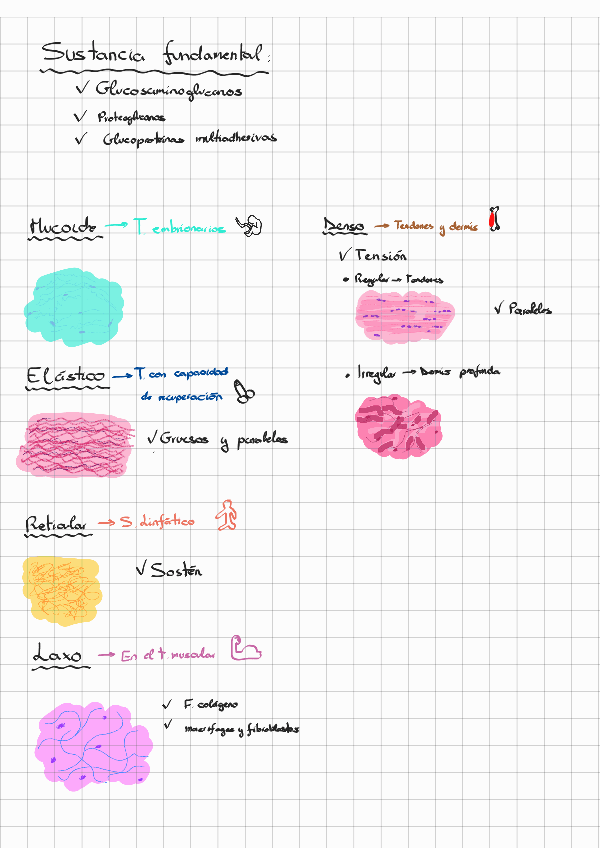 Sustancia fundamental:
✓ Glucosaminoglucanos
✓ Proteoglucanos
✓ Glucoproteínas multiadhesivas
Mucoide → T embrionarios
Elástico → T con capacidad
de recuperación
✓ Gruesos y paralelos
Reticular → S. linfático
✓ Sostén
Laxo → En el t. muscular
✓ F. colágeno
✓ macrófagos y fibroblastos
Denso → Tendones y dermis
✓ Tensión
• Regular → Tendones
✓ Paralelos
• Irregular → Dermis profunda